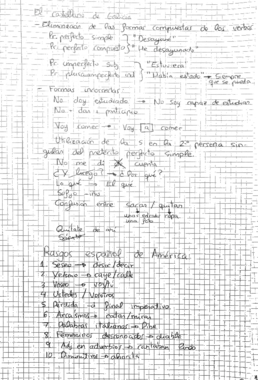 D) castellano de Galicia
- Eliminación de las formas compuestas de los verbos
Pr. perfecto simple } "Desayuné"
Pr. perfecto compuesto } "He desayunado"
Pr. imperfecto subj } "Estuviera"
Pr. pluscuamperfecto ind } "Había estado" → Siempre que se pueda
- Formas incorrectas
No doy estudiado → No soy capaz de estudiar
No + dar + participio
Voy comer → Voy a comer
Utilización de la s en la 2ª persona singular del pretérito perfecto simple
No me di cuenta
¿Y luego? → ¿Por qué?
Lo qué
Sufijo -iño
Confusión entre sacar / quitar
Quítate de ahí
Rasgos español de América
1. Seseo → desir/decir
2. Yeísmo → caye/calle
3. Voseo → vos/tú
4. Ustedes / Vosotros
5. Pérdida d final imperativo
6. Arcaísmos →
7. Palabras italianas → Pibe
8. Femeninos desconocidos →
9. Adj. en adverbios → lindo
10. Diminutivos → ahorita